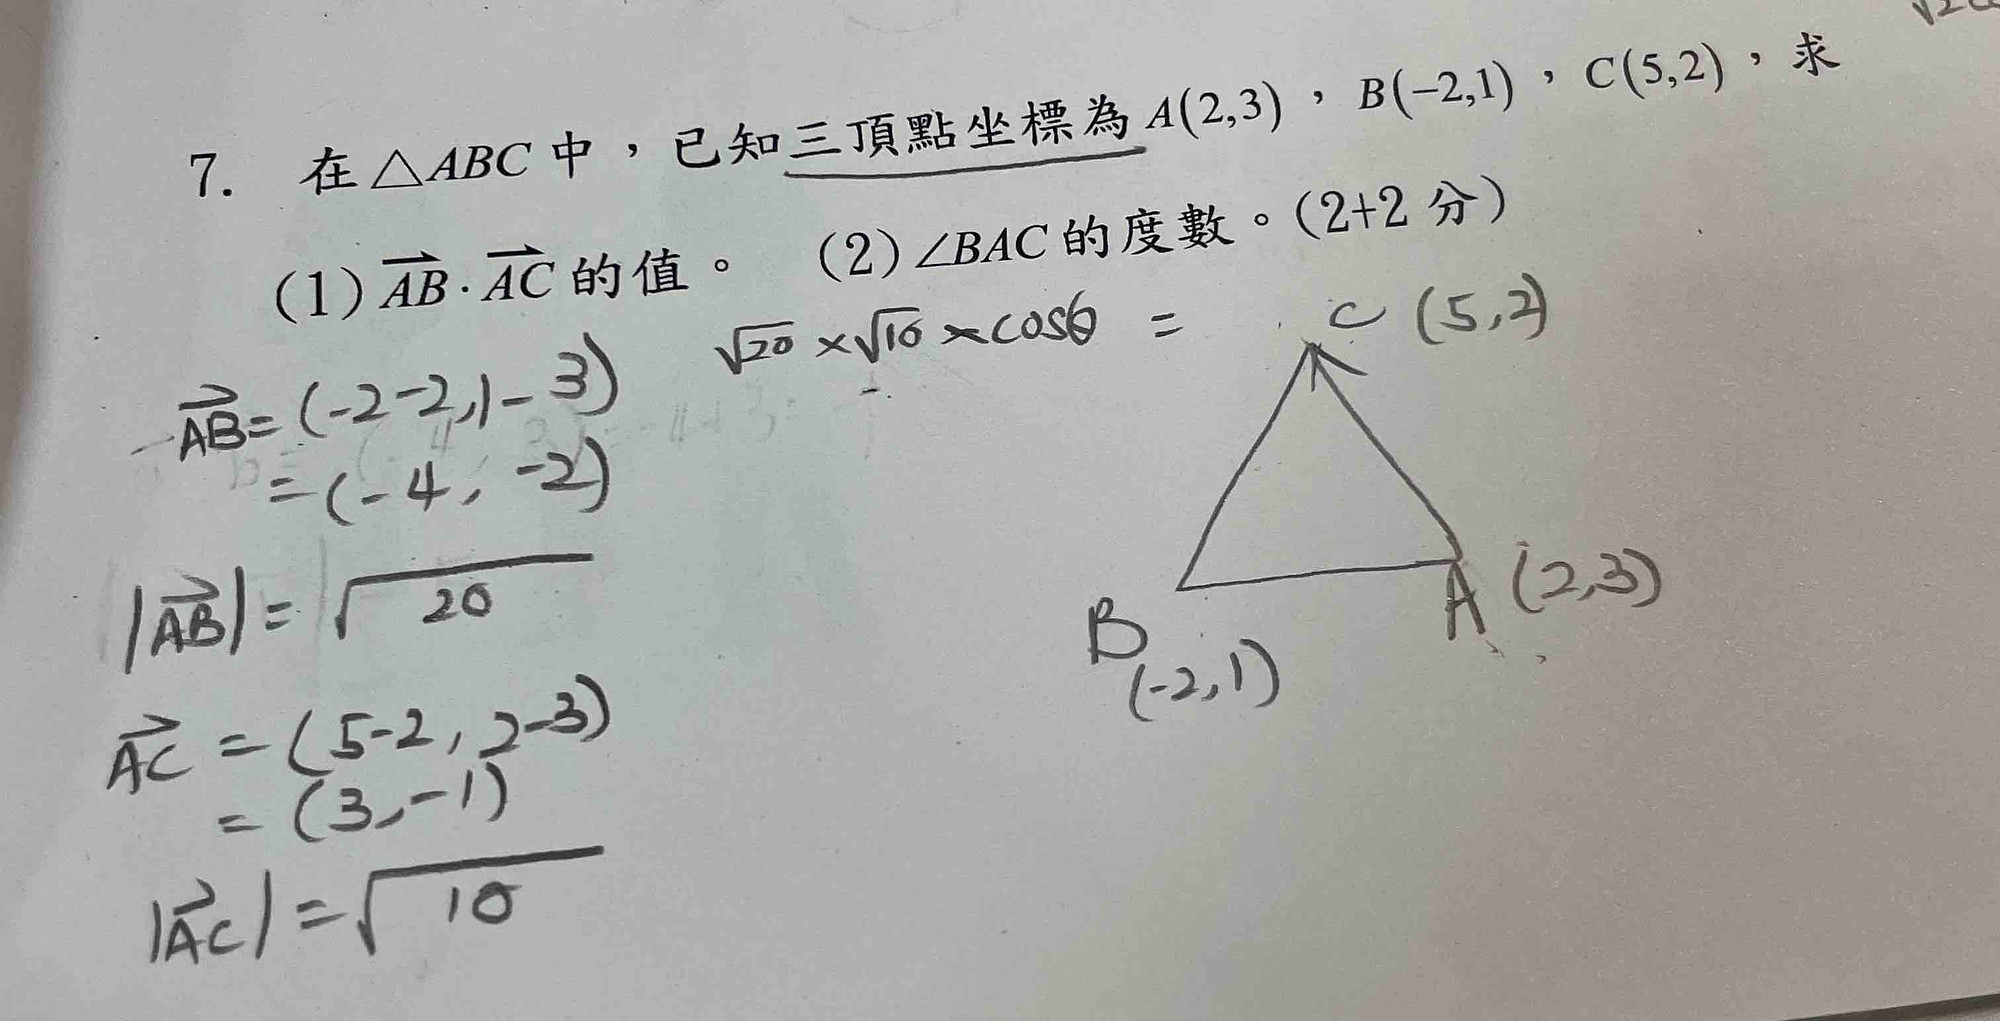 7. 在△ABC中，已知三頂點坐標為A(2,3)，B(−2,1)，C(5,2)，求
(1) \overrightarrow{AB}·\overrightarrow{AC}的值。 (2)∠BAC的度數。(2+2分)
√20 ×√10 ×cosθ =
C (5,2)
\overrightarrow{AB}=(-2-2,1-3)
=(-4,-2)
|\overrightarrow{AB}|=√20
A (2,3)
B
(-2,1)
\overrightarrow{AC} = (5-2,2-3)
= (3,-1)
|\overrightarrow{AC}|=√10